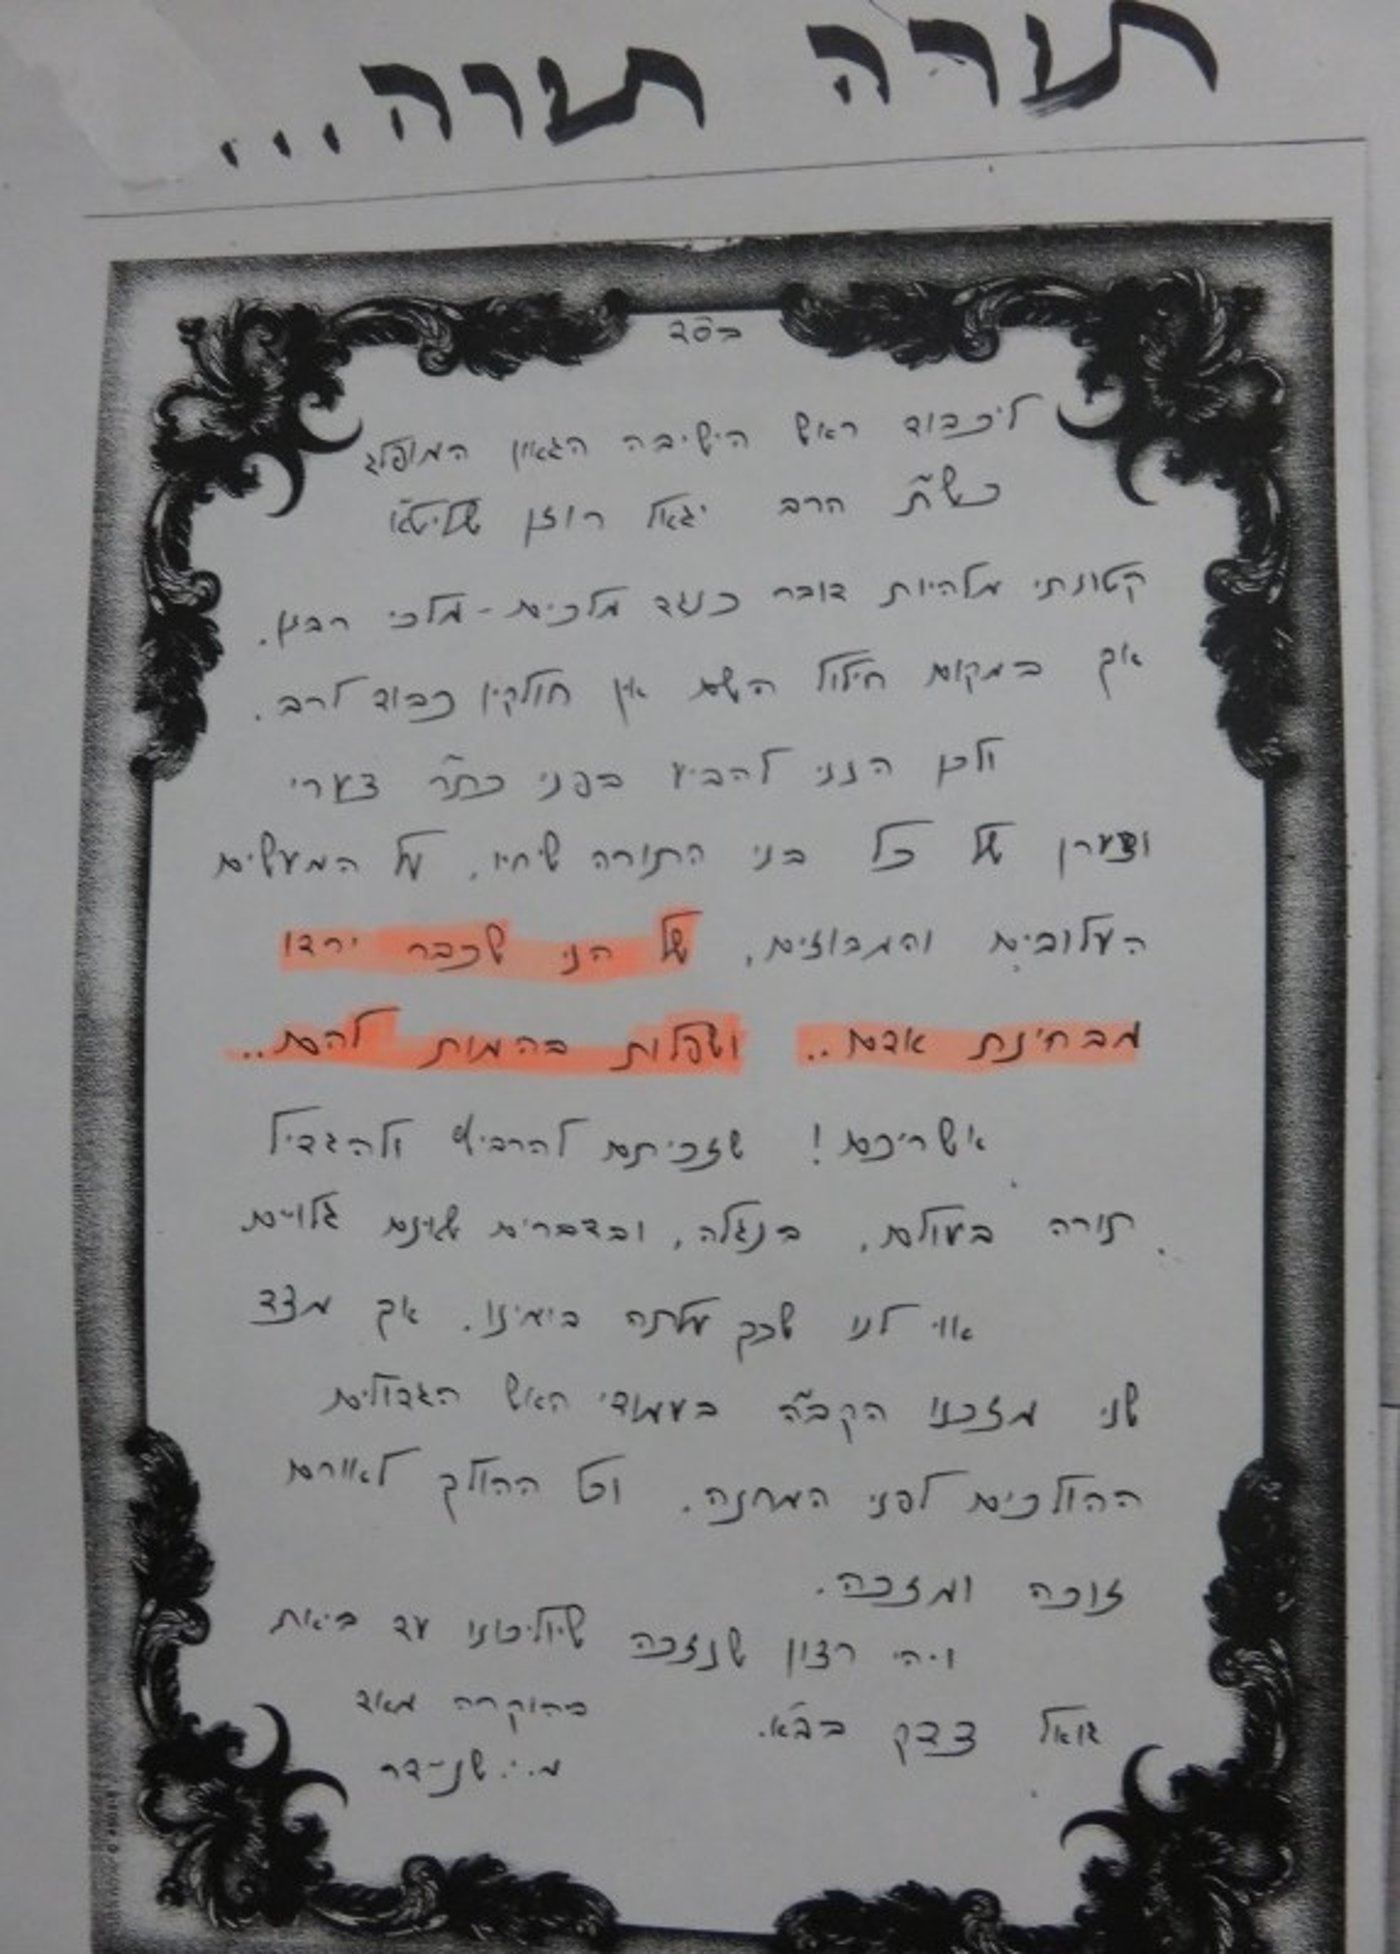 תורה תורה...
בס"ד
ליכבוד ראש הישיבה הגאון המופלג
כש"ת הרב יגאל רוזן שליט"א
קטונתי מלהיות דובר כנגד מלכים - מלכי רבנן.
אך במקום חילול השם אין חולקין כבוד לרב.
ולכן הנני להביע בפני כת"ר צערי
וצערן של כל בני התורה שיחיו, על המעשים
העלובים והמבוזים, של הני שכבר ירדו
מבחינת אדם.. ושפלות בהמות להם..
אשריכם! שזכיתם להרביץ ולהגדיל
תורה בעולם, בנגלה, ובדברים שאינם גלויים
אוי לנו שכך עלתה בימינו. אך מצד
שני מזכנו הקב"ה בעמודי האש הגדולים
ההולכים לפני המחנה. וכל ההולך לאורם
זוכה ומזכה.
ויהי רצון שנזכה שיוליכונו עד ביאת
גואל צדק בב"א.
בהוקרה מאוד
מ.י. שניידר